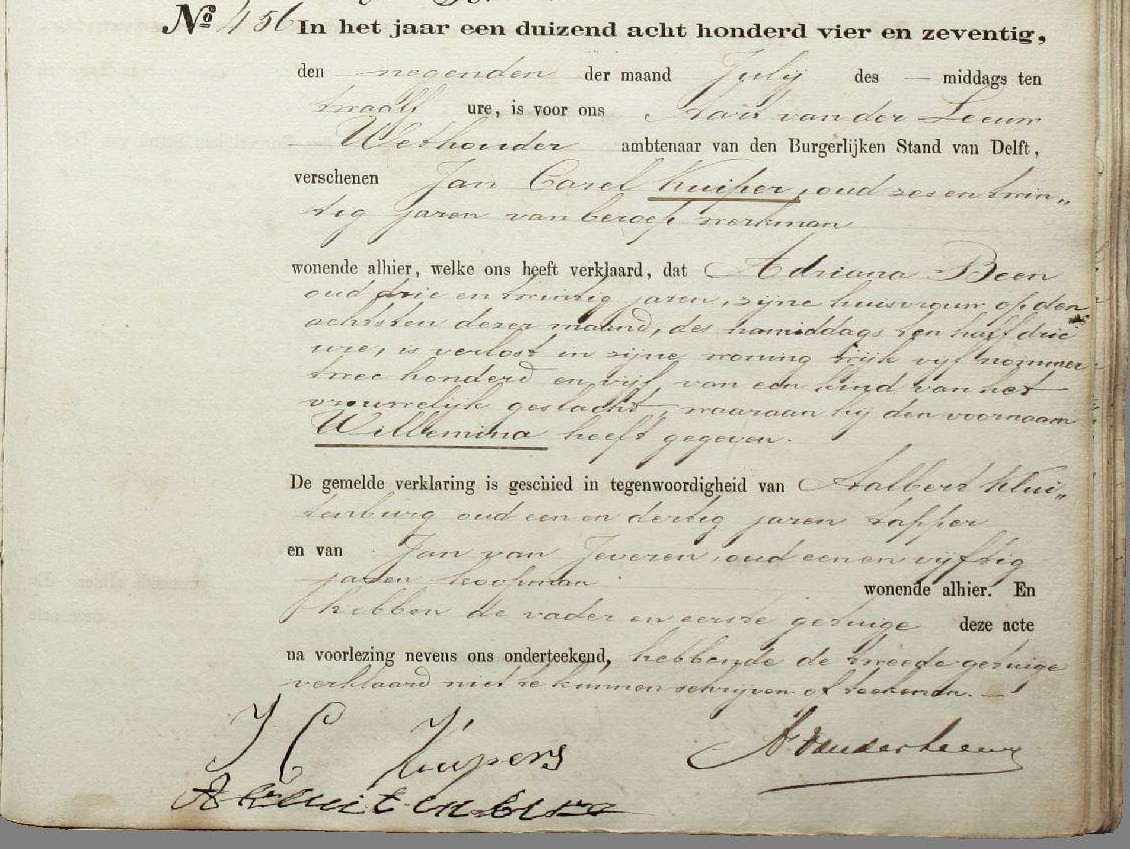 No 456 In het jaar een duizend acht honderd vier en zeventig,
den negenden der maand July des — middags ten
twaalf ure, is voor ons Aart van der Leeuw
Wethouder ambtenaar van den Burgerlijken Stand van Delft,
verschenen Jan Carel Kuiper, oud zes en twin„
tig jaren van beroep werkman
wonende alhier, welke ons heeft verklaard, dat Adriana Been
oud drie en twintig jaren, zijne huisvrouw op den
achtsten dezer maand, des namiddags ten half drie
ure, is verlost in zijne woning wijk vijf nommer
twee honderd en vijf, van een kind van het
vrouwelijk geslacht, waaraan hij den voornaam
Willemina heeft gegeven.
De gemelde verklaring is geschied in tegenwoordigheid van Aalbert Klui„
tenburg oud een en dertig jaren tapper
en van Jan van Jeveren oud een en vijftig
jaren koopman wonende alhier. En
hebben de vader en eerste getuige deze acte
na voorlezing nevens ons onderteekend, hebbende de tweede getuige
verklaard niet te kunnen schrijven of teekenen. —
J C Kuipers
A. vander Leeuw
A Kluitenburg